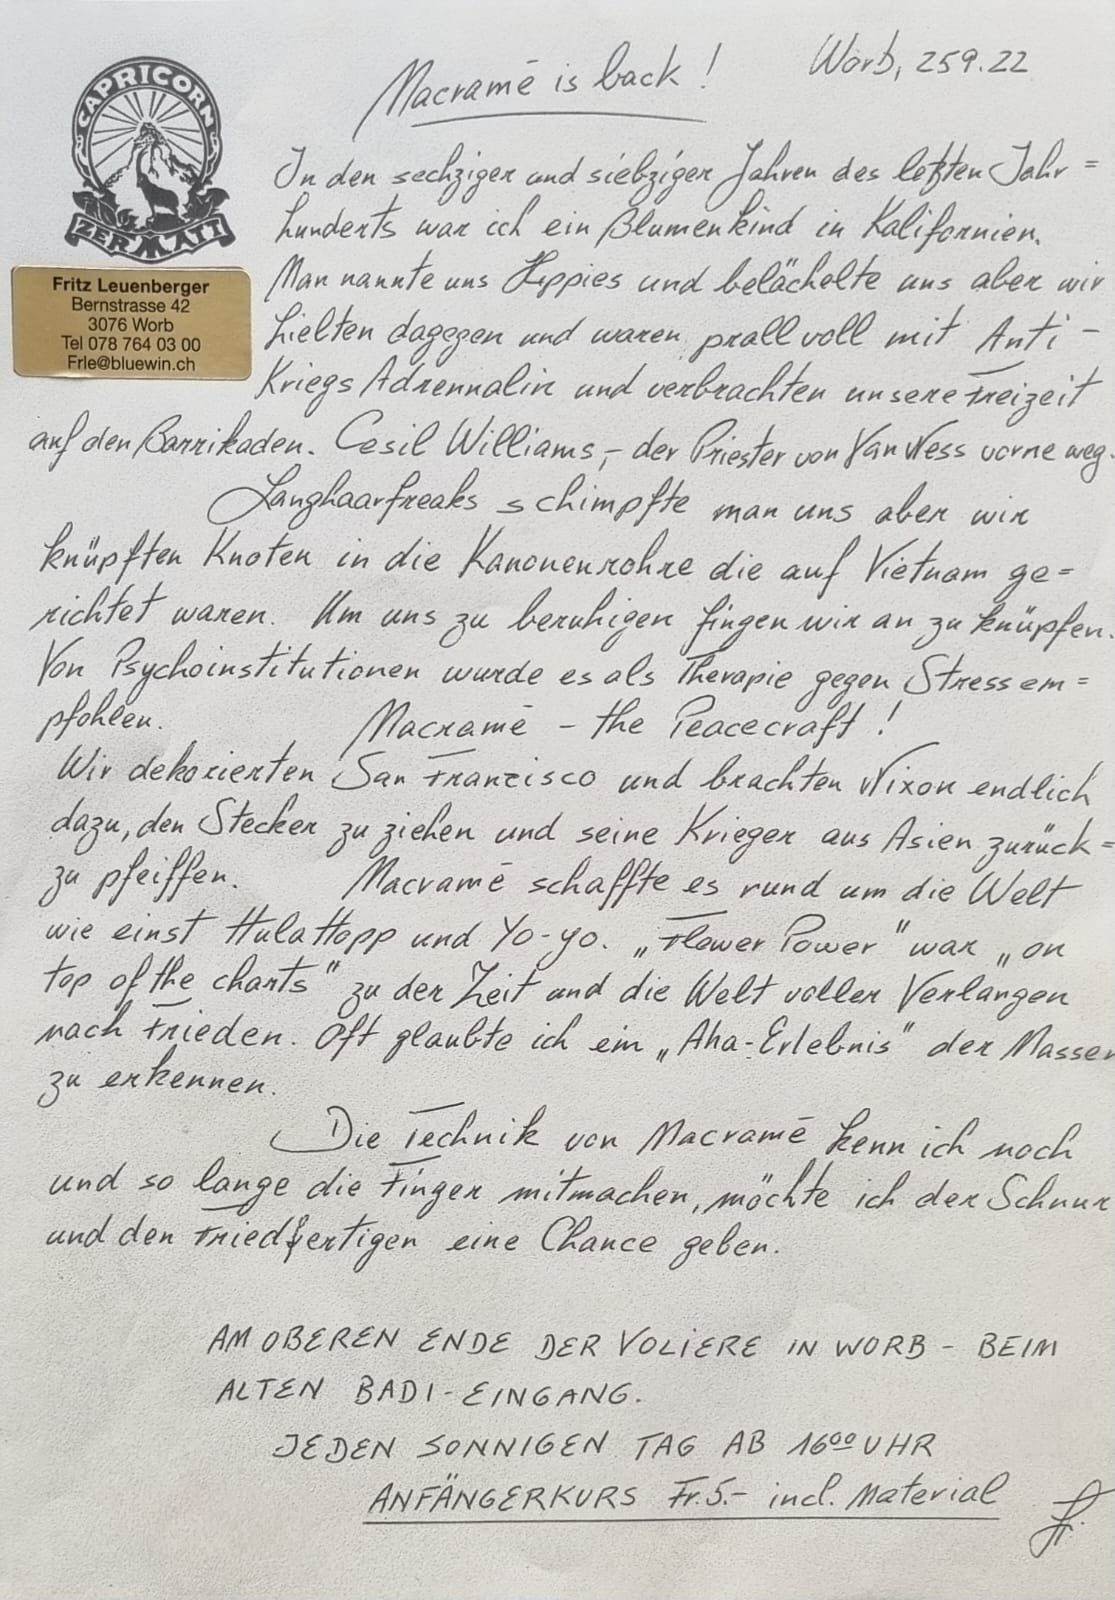 Macramē is back !
Worb, 259.22
CAPRICORN
ZERMATT
Fritz Leuenberger
Bernstrasse 42
3076 Worb
Tel 078 764 03 00
Frle@bluewin.ch
In den sechziger und siebziger Jahren des letzten Jahr=
hunderts war ich ein Blumenkind in Kalifornien.
Man nannte uns Hippies und belächelte uns aber wir
hielten dagegen und waren prall voll mit Anti-
Kriegs Adrennalin und verbrachten unsere Freizeit
auf den Barrikaden. Cesil Williams,- der Priester von Van Ness vorne weg.
Langhaarfreaks schimpfte man uns aber wir
knüpften Knoten in die Kanonenrohre die auf Vietnam ge=
richtet waren. Um uns zu beruhigen fingen wir an zu knüpfen.
Von Psychoinstitutionen wurde es als Therapie gegen Stress em=
pfohlen. Macramē - the Peacecraft !
Wir dekorierten San Franzisco und brachten Nixon endlich
dazu, den Stecker zu ziehen und seine Krieger aus Asien zurück=
zu pfeiffen. Macramē schaffte es rund um die Welt
wie einst Hula Hopp und Yo-yo. „Flower Power" war „on
top of the charts" zu der Zeit und die Welt voller Verlangen
nach Frieden. Oft glaubte ich ein „Aha-Erlebnis" der Massen
zu erkennen.
Die Technik von Macramē kenn ich noch
und so lange die Finger mitmachen, möchte ich der Schnur
und den Friedfertigen eine Chance geben.
AM OBEREN ENDE DER VOLIERE IN WORB - BEIM
ALTEN BADI-EINGANG.
JEDEN SONNIGEN TAG AB 16⁰⁰ UHR
ANFÄNGERKURS Fr. 5.- incl. Material